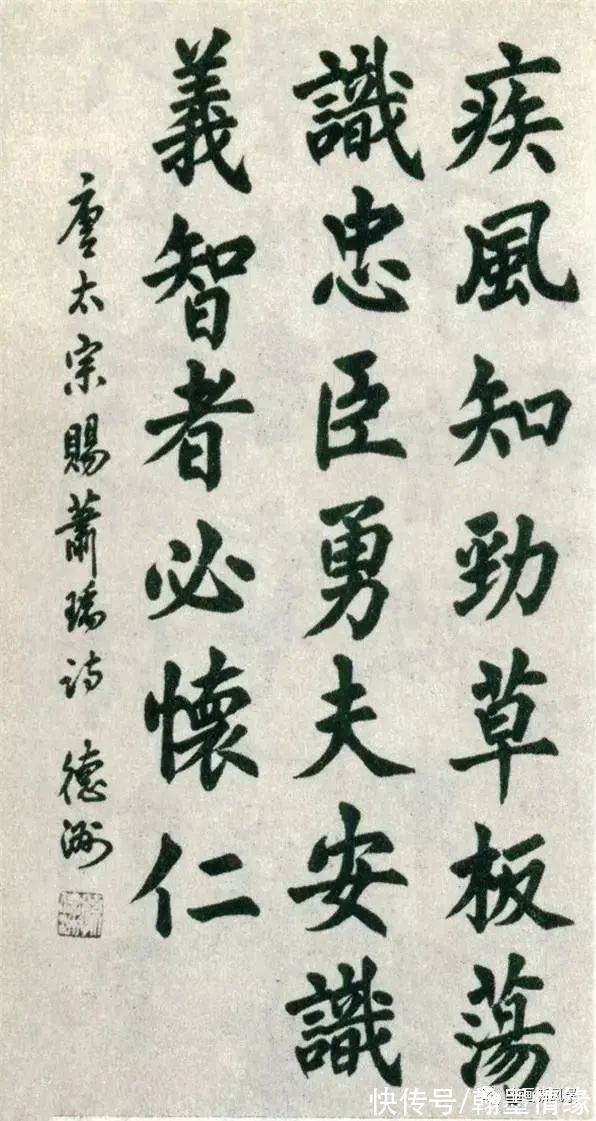 疾風知勁草板蕩
識忠臣勇夫安識
義智者必懷仁
唐太宗賜蕭瑀詩 德洲
快传号/翰墨情缘